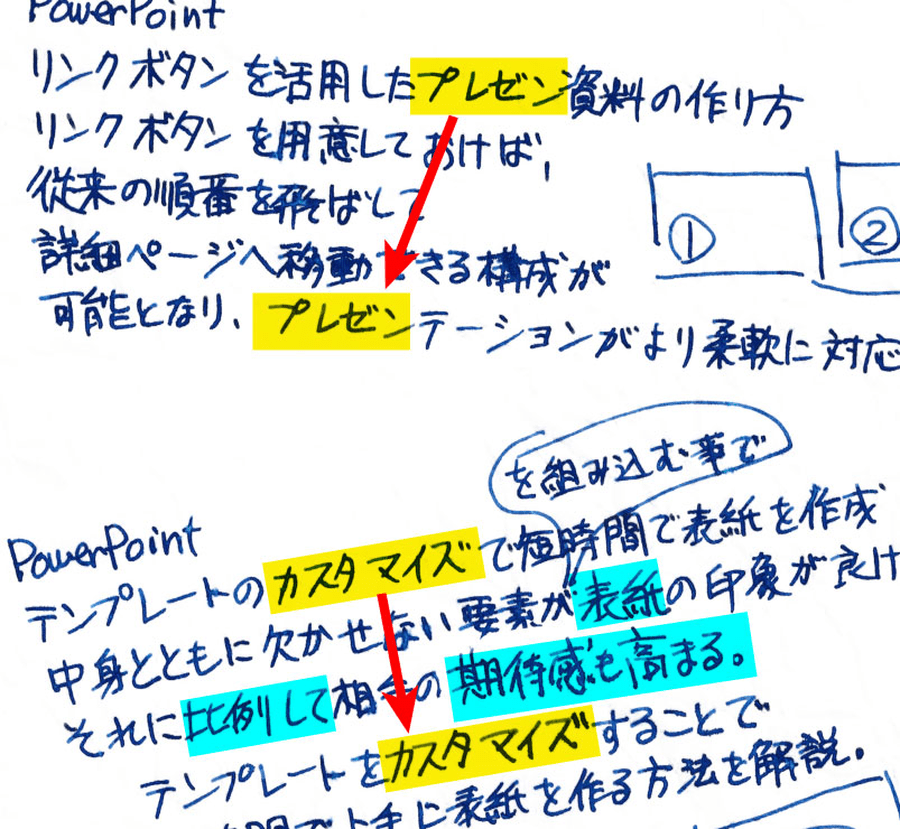 PowerPoint
リンクボタンを活用したプレゼン資料の作り方
リンクボタンを用意しておけば、
従来の順番を飛ばして
詳細ページへ移動できる構成が
可能となり、プレゼンテーションがより柔軟に対応
①
②
を組み込む事で
PowerPoint
テンプレートのカスタマイズで短時間で表紙を作成
中身とともに欠かせない要素が表紙の印象が良け
それに比例して相手の期待感も高まる。
テンプレートをカスタマイズすることで
上手に表紙を作る方法を解説。